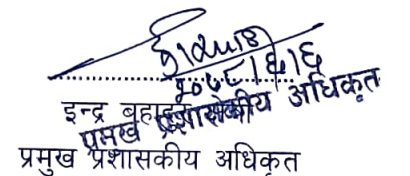 २०७८।६।६
इन्द्र बहादुर
प्रमुख प्रशासकीय अधिकृत
प्रमुख प्रशासकीय अधिकृत